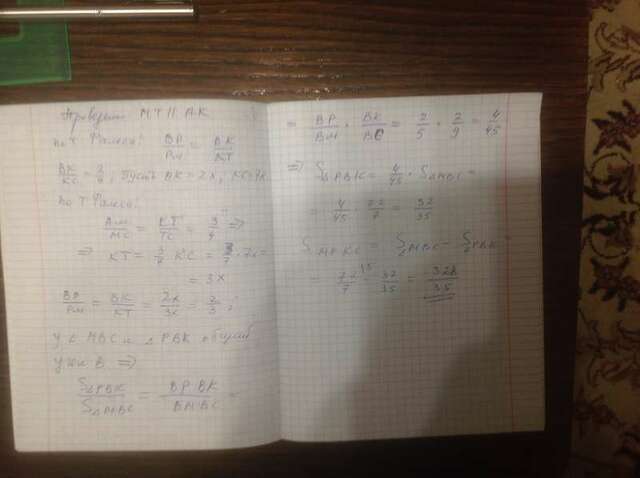 Проведем MT || AK
по т Фалеса:
BP/PM = BK/KT
BK/KC = 2/7; Пусть BK = 2x, KC = 7x
по т Фалеса:
AM/MC = KT/TC = 3/4 ⇒
⇒ KT = 3/7 KC = 3/7 · 7x =
= 3x
BP/PM = BK/KT = 2x/3x = 2/3;
у Δ MBC и Δ PBK общий
угол B ⇒
SΔPBK/SΔMBC = BP·BK/BM·BC =
= BP/BM · BK/BC = 2/5 · 2/9 = 4/45
⇒ SΔPBK = 4/45 · SΔMBC =
= 4/45 · 72/7 = 32/35
S MPKC = SΔMBC − SΔPBK =
= 72/7 − 32/35 = 328/35